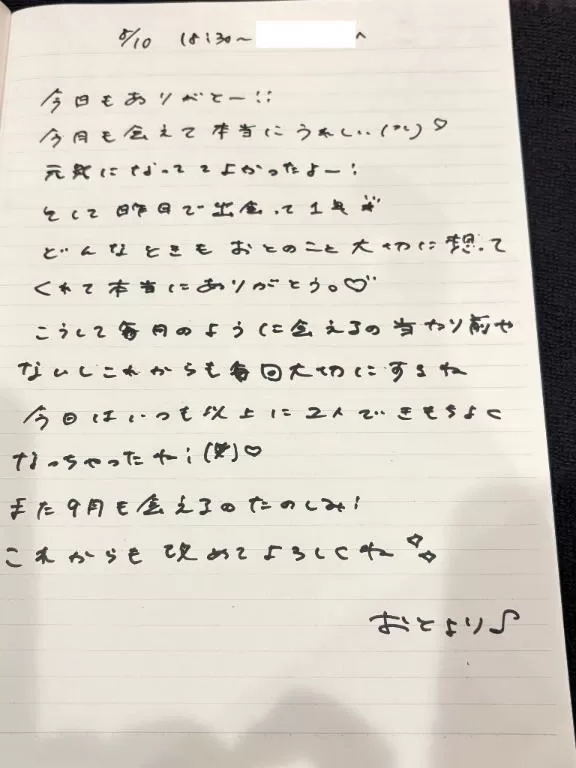 8/10 18:30~ へ
今日もありがとー!!
今月も会えて本当にうれしい(^^)♡
元気になっててよかったよー!
そして昨日で出会って1年
どんなときもおとのこと大切に想って
くれて本当にありがとう。♡
こうして毎月のように会えるの当たり前や
ないしこれからも毎回大切にするね
今日はいつも以上に2人できもちよく
なっちゃったね!♡
また9月も会えるのたのしみ!
これからも改めてよろしくね
おとより♪